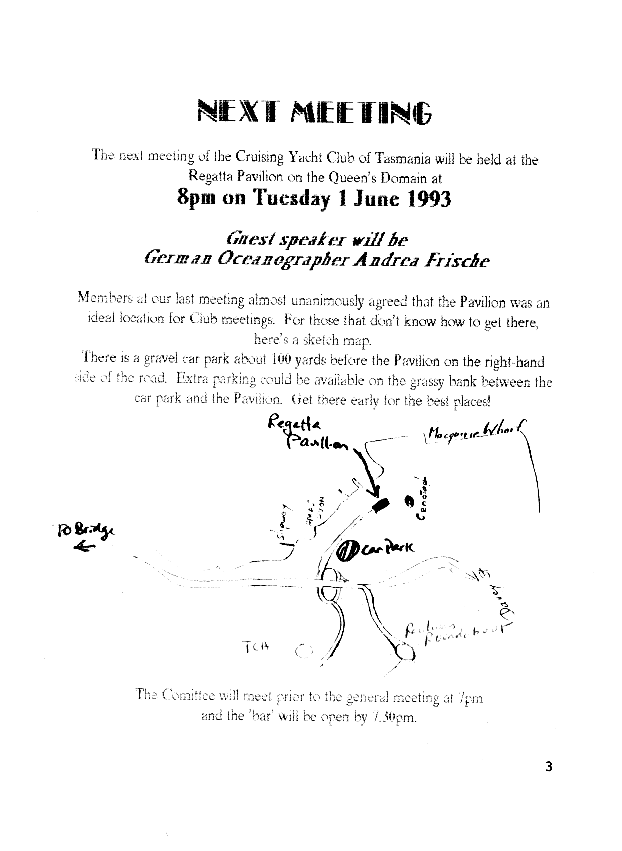 NEXT MEETING
The next meeting of the Cruising Yacht Club of Tasmania will be held at the
Regatta Pavilion on the Queen's Domain at
8pm on Tuesday 1 June 1993
Guest speaker will be
German Oceanographer Andrea Frische
Members at our last meeting almost unanimously agreed that the Pavilion was an
ideal location for Club meetings. For those that don't know how to get there,
here's a sketch map.
There is a gravel car park about 100 yards before the Pavilion on the right-hand
side of the road. Extra parking could be available on the grassy bank between the
car park and the Pavilion. Get there early for the best places!
Regatta
Pavilion
Macquarie Wharf
Cenotaph
Slipway
To Bridge
Car Park
Davey St
TCA
Roundabout
The Comittee will meet prior to the general meeting at 7pm
and the 'bar' will be open by 7.30pm.
3